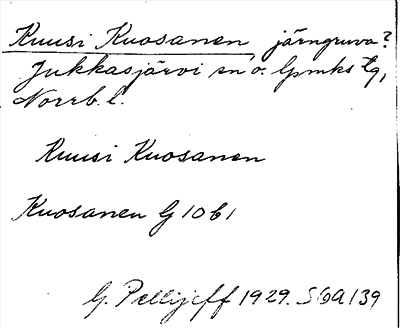 Kuusi Kuosanen, järngruva?
Jukkasjärvi sn o. lpmks tg,
Norrb. l.
Kuusi Kuosanen
Kuosanen G 10 b 1
G. Pellijeff 1929. S 69A 139